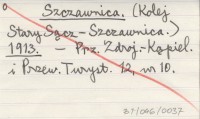 Szczawnica. (Kolej
Stary Sącz – Szczawnica.)
1913. – Prz. Zdroj-Kąpiel.
i Przew. Turyst. 12, nr 10.
BT/046/0037